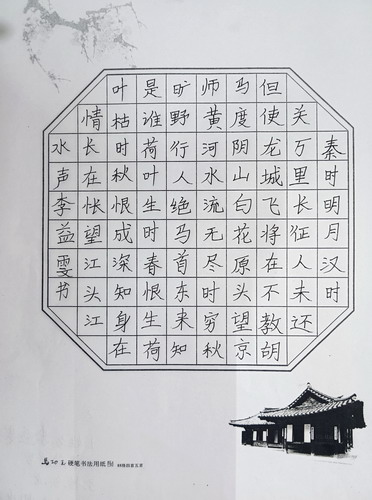 秦时明月汉时
关万里长征人未还
但使龙城飞将在不教胡
马度阴山白花原头望京
师黄河水流无尽时穷秋
旷野行人绝马首东来知
是谁荷叶生时春恨生荷
叶枯时秋恨成深知身在
情长在怅望江头江
水声李益雯书
硬笔书法用纸